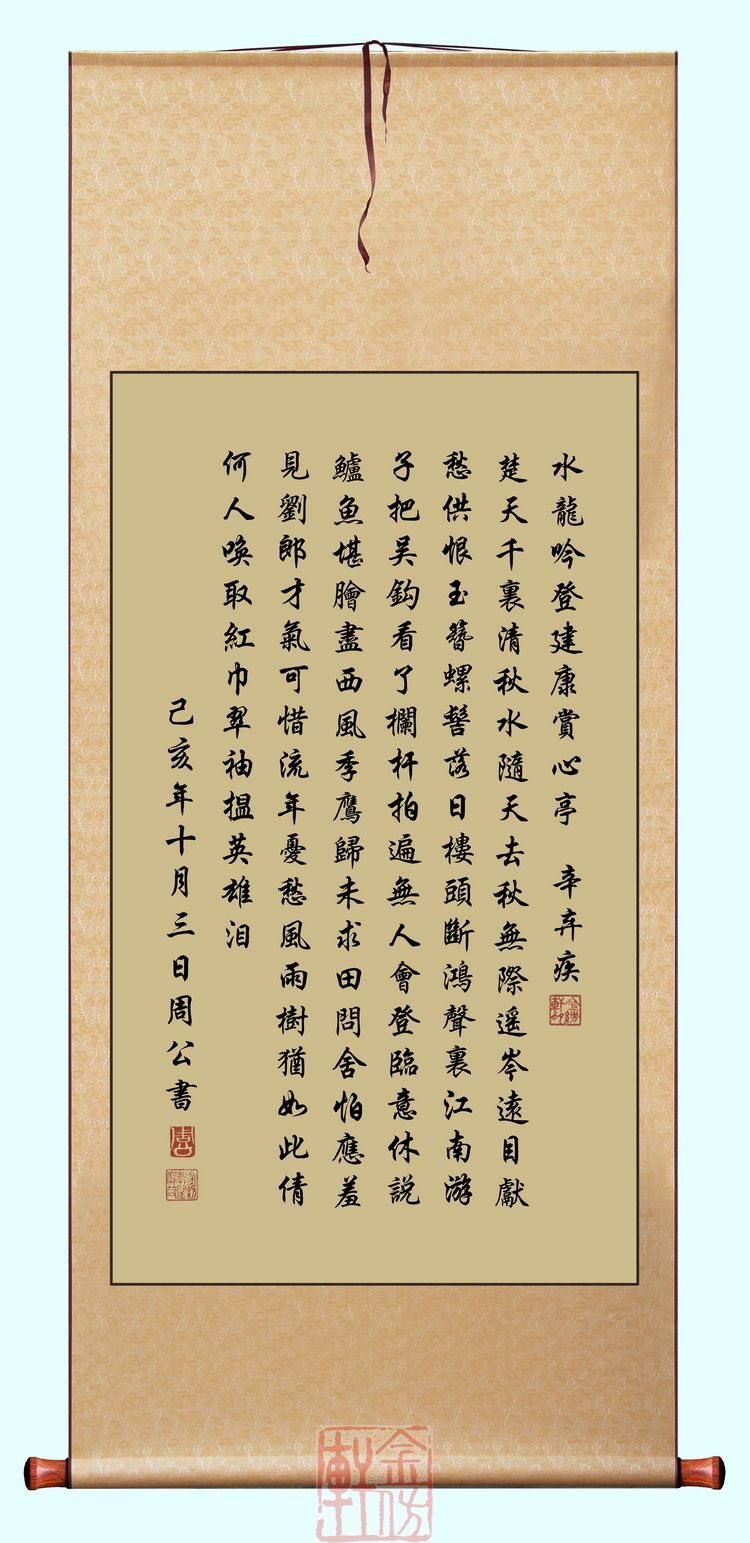 水龍吟登建康賞心亭 辛弃疾
楚天千裏清秋水隨天去秋無際遥岑遠目獻
愁供恨玉簪螺髻落日樓頭斷鴻聲裏江南游
子把吴鈎看了欄杆拍遍無人會登臨意休説
鱸魚堪膾盡西風季鷹歸未求田問舍怕應羞
見劉郎才氣可惜流年憂愁風雨樹猶如此倩
何人唤取紅巾翠袖揾英雄泪
己亥年十月三日周公書
金仿軒